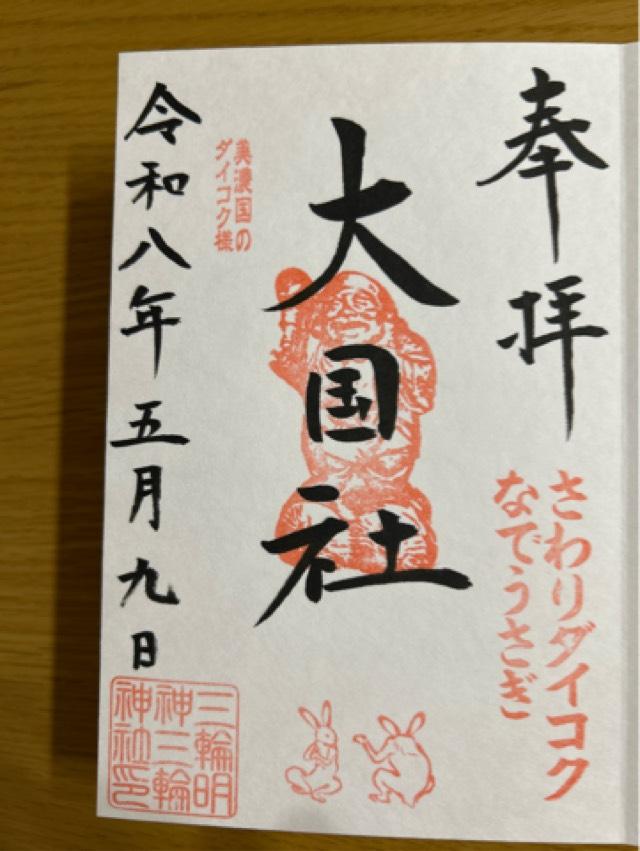 奉拝
さわりダイコク
なでうさぎ
大国社
美濃国の
ダイコク様
令和八年五月九日
三輪明
神三輪
神社印